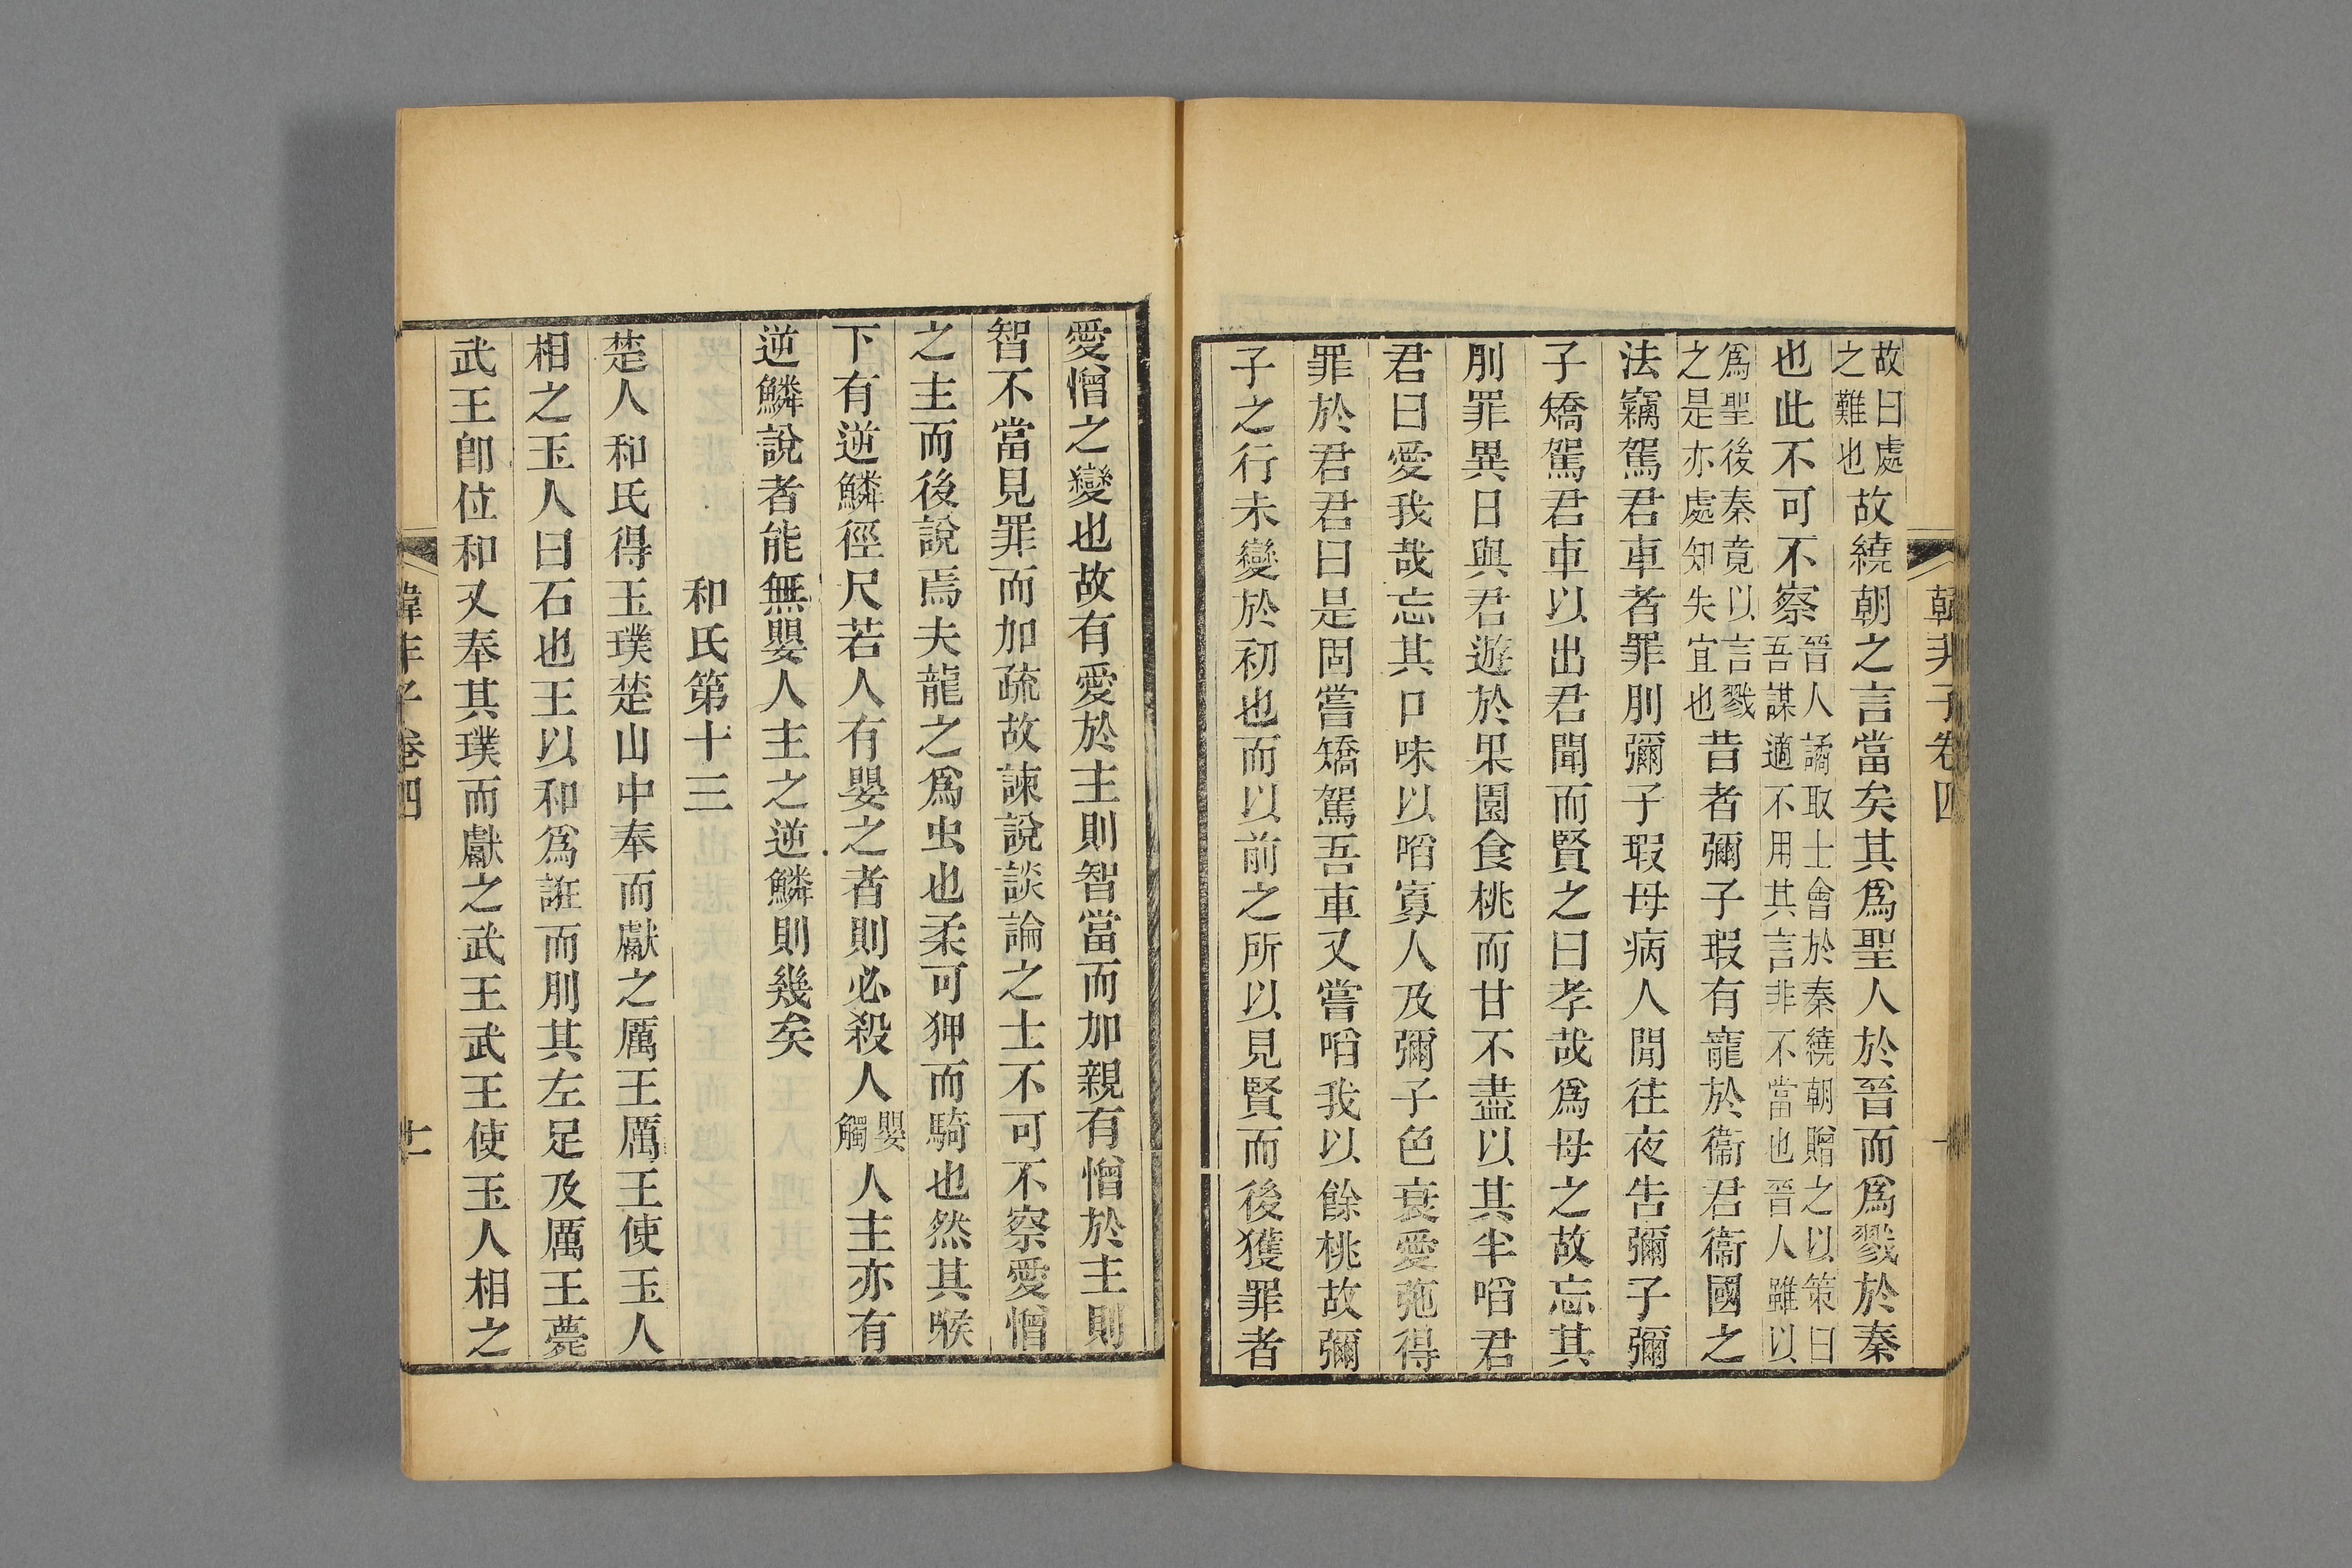 韓非子卷四
故曰處之難也故繞朝之言當矣其爲聖人於晉而爲戮於秦
也此不可不察晉人譎取士會於秦繞朝贈之以策曰吾謀適不用其言非不當也晉人雖以
爲聖後秦竟以言戮之是亦處知失宜也昔者彌子瑕有寵於衞君衞國之
法竊駕君車者罪刖彌子瑕母病人閒往夜告彌子彌
子矯駕君車以出君聞而賢之曰孝哉爲母之故忘其
刖罪異日與君遊於果園食桃而甘不盡以其半啗君
君曰愛我哉忘其口味以啗寡人及彌子色衰愛弛得
罪於君君曰是固嘗矯駕吾車又嘗啗我以餘桃故彌
子之行未變於初也而以前之所以見賢而後獲罪者
愛憎之變也故有愛於主則智當而加親有憎於主則
智不當見罪而加疏故諫說談論之士不可不察愛憎
之主而後說焉夫龍之爲虫也柔可狎而騎也然其喉
下有逆鱗徑尺若人有嬰之者則必殺人嬰觸人主亦有
逆鱗說者能無嬰人主之逆鱗則幾矣
和氏第十三
楚人和氏得玉璞楚山中奉而獻之厲王厲王使玉人
相之玉人曰石也王以和爲誑而刖其左足及厲王薨
武王卽位和又奉其璞而獻之武王武王使玉人相之
韓非子卷四
十一